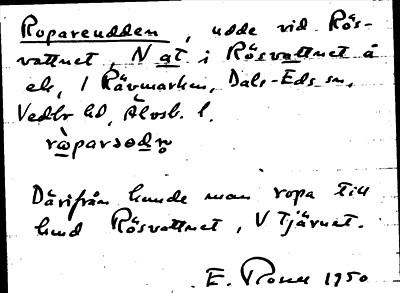 Ropareudden, udde vid Rös-
vattnet, N at i Rösvattnet å
ek, 1 Rävmarken, Dals-Eds sn,
Vedbo hd, Älvsb. l.
Därifrån kunde man ropa till
hmd Rösvattnet, V Tjärnet.
E. 1950